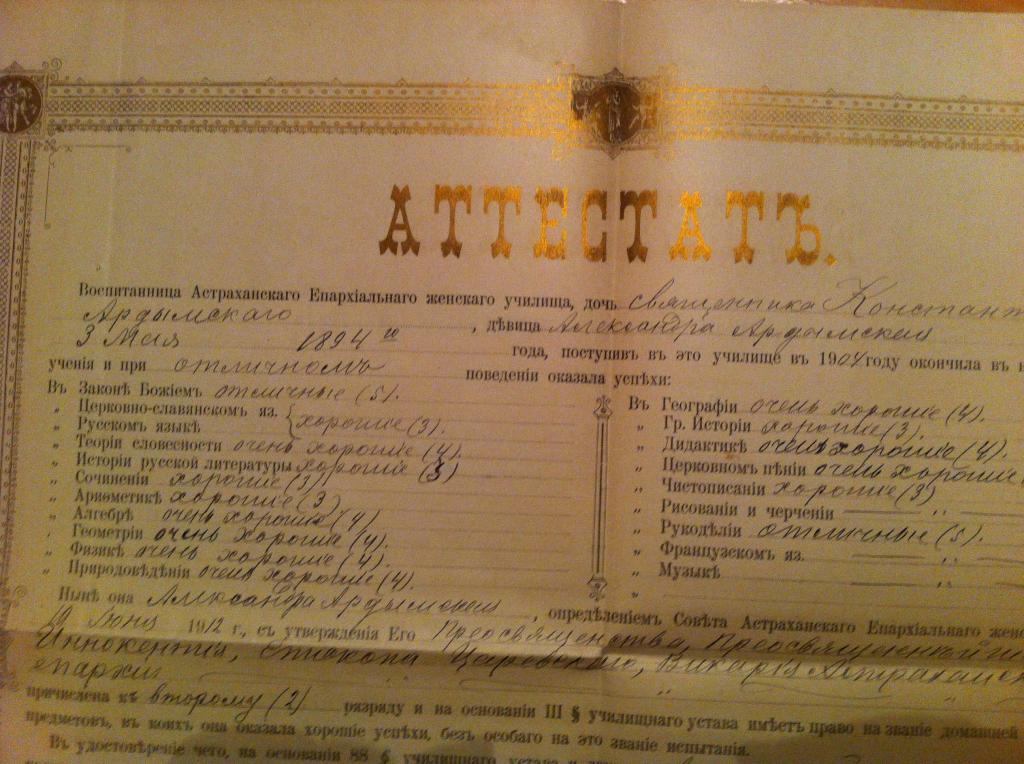 АТТЕСТАТЪ.
Воспитанница Астраханскаго Епархіальнаго женскаго училища, дочь священника Констант
Ардымскаго, дѣвица Александра Ардымская
3 Мая 1894 го года, поступивъ въ это училище въ 1904 году окончила въ н
ученія и при отличномъ поведеніи оказала успѣхи:
Въ Законѣ Божіемъ отличные (5).
„ Церковно-славянскомъ яз.
„ Русскомъ языкѣ хорошіе (3).
„ Теоріи словесности очень хорошіе (4).
„ Исторіи русской литературы хорошіе (3)
„ Сочиненіи хорошіе (3)
„ Ариѳметикѣ хорошіе (3)
„ Алгебрѣ очень хорошіе (4)
„ Геометріи очень хорошіе (4).
„ Физикѣ очень хорошіе (4).
„ Природовѣдѣніи очень хорошіе (4).
Въ Географіи очень хорошіе (4).
„ Гр. Исторіи хорошіе (3).
„ Дидактикѣ очень хорошіе (4).
„ Церковномъ пѣніи очень хорошіе
„ Чистописаніи хорошіе (3)
„ Рисованіи и черченіи — „ —
„ Рукодѣліи отличные (5).
„ Французскомъ яз. — „ —
„ Музыкѣ — „ —
„
Нынѣ она Александра Ардымская, опредѣленіемъ Совѣта Астраханскаго Епархіальнаго женс
Іюня 1912 г., съ утвержденія Его Преосвященства, Преосвященнѣйш
Иннокентія, Епископа Царевскаго, Викарія Астраханск
епархіи „ „
причислена къ второму (2) разряду и на основаніи III § училищнаго устава имѣетъ право на званіе домашней
предметовъ, въ коихъ она оказала хорошіе успѣхи, безъ особаго на это званіе испытанія.
Въ удостовѣреніе чего, на основаніи 88 § училищнаго устава и